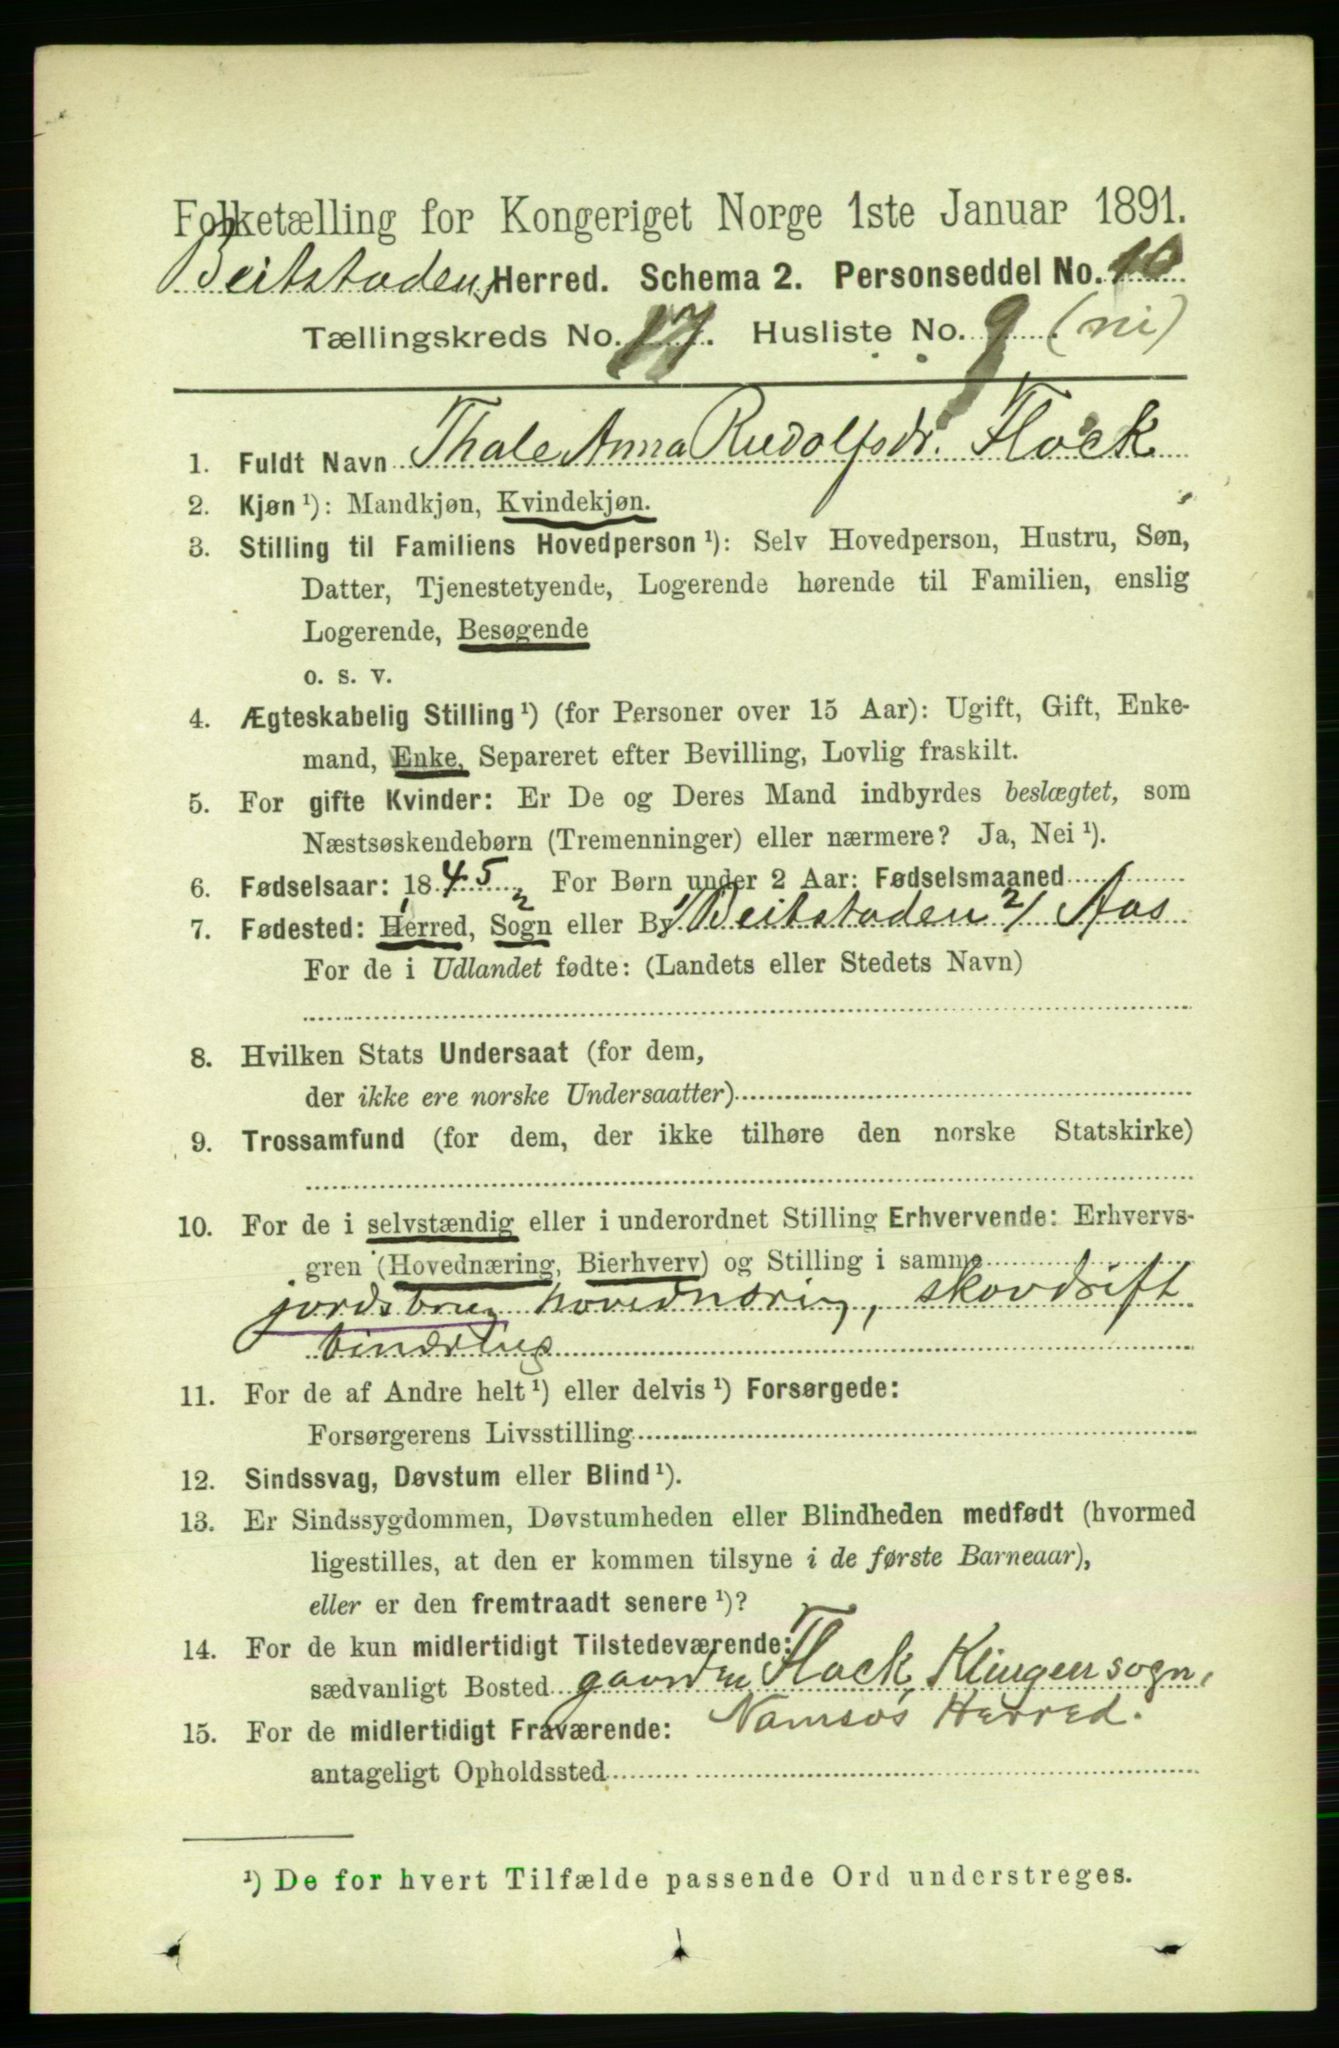 Folketælling for Kongeriget Norge 1ste Januar 1891.
Beitstadens Herred. Schema 2. Personseddel No. 10
Tællingskreds No. 17. Husliste No. 9 (ni)
1. Fuldt Navn Thale Anna Rudolfsdr. Flack
2. Kjøn ¹): Mandkjøn, Kvindekjøn.
3. Stilling til Familiens Hovedperson ¹): Selv Hovedperson, Hustru, Søn,
Datter, Tjenestetyende, Logerende hørende til Familien, enslig
Logerende, Besøgende
o. s. v.
4. Ægteskabelig Stilling ¹) (for Personer over 15 Aar): Ugift, Gift, Enke-
mand, Enke, Separeret efter Bevilling, Lovlig fraskilt.
5. For gifte Kvinder: Er De og Deres Mand indbyrdes beslægtet, som
Næstsøskendebørn (Tremenninger) eller nærmere? Ja, Nei ¹).
6. Fødselsaar: 1845 For Børn under 2 Aar: Fødselsmaaned
7. Fødested: Herred, Sogn eller By 1/ Beitstaden 2/ Aas
For de i Udlandet fødte: (Landets eller Stedets Navn)
8. Hvilken Stats Undersaat (for dem,
der ikke ere norske Undersaatter)
9. Trossamfund (for dem, der ikke tilhøre den norske Statskirke)
10. For de i selvstændig eller i underordnet Stilling Erhvervende: Erhvervs-
gren (Hovednæring, Bierhverv) og Stilling i samme
jordsbrug hovednæring, skovdrift
binæring
11. For de af Andre helt ¹) eller delvis ¹) Forsørgede:
Forsørgerens Livsstilling
12. Sindssvag, Døvstum eller Blind ¹).
13. Er Sindssygdommen, Døvstumheden eller Blindheden medfødt (hvormed
ligestilles, at den er kommen tilsyne i de første Barneaar),
eller er den fremtraadt senere ¹)?
14. For de kun midlertidigt Tilstedeværende:
sædvanligt Bosted gaarden Flack, Klingen sogn,
Namsos Herred.
15. For de midlertidigt Fraværende:
antageligt Opholdssted
¹) De for hvert Tilfælde passende Ord understreges.